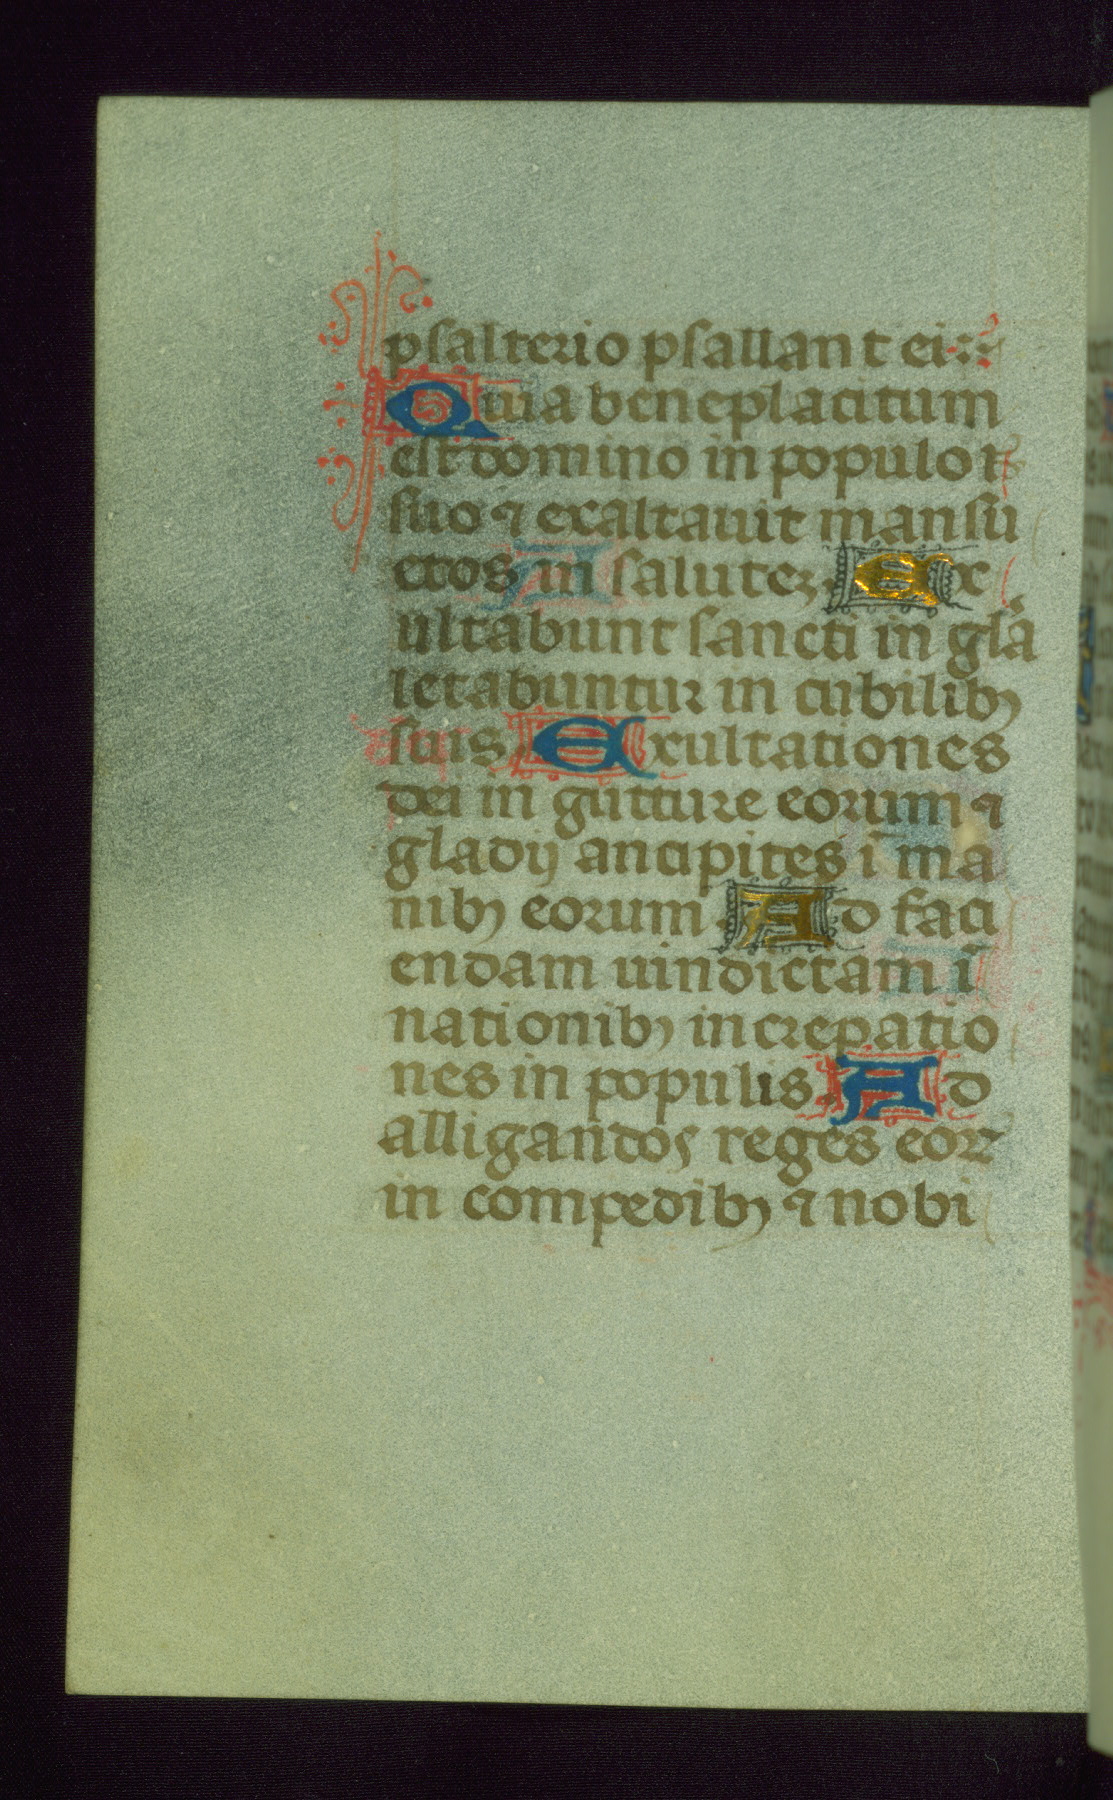 psalterio psallant ei
Quia beneplacitum
est domino in populo
suo ⁊ exaltauit mansu
etos in salutez. Ex
ultabunt sancti in gl̄a
letabuntur in cubilibꝰ
suis. Exultationes
dei in gutture eorum ⁊
gladij ancipites ī ma
nibꝰ eorum. Ad faci
endam uindictam ī
nationibꝰ increpatio
nes in populis. Ad
alligandos reges eoꝝ
in compedibꝰ ⁊ nobi